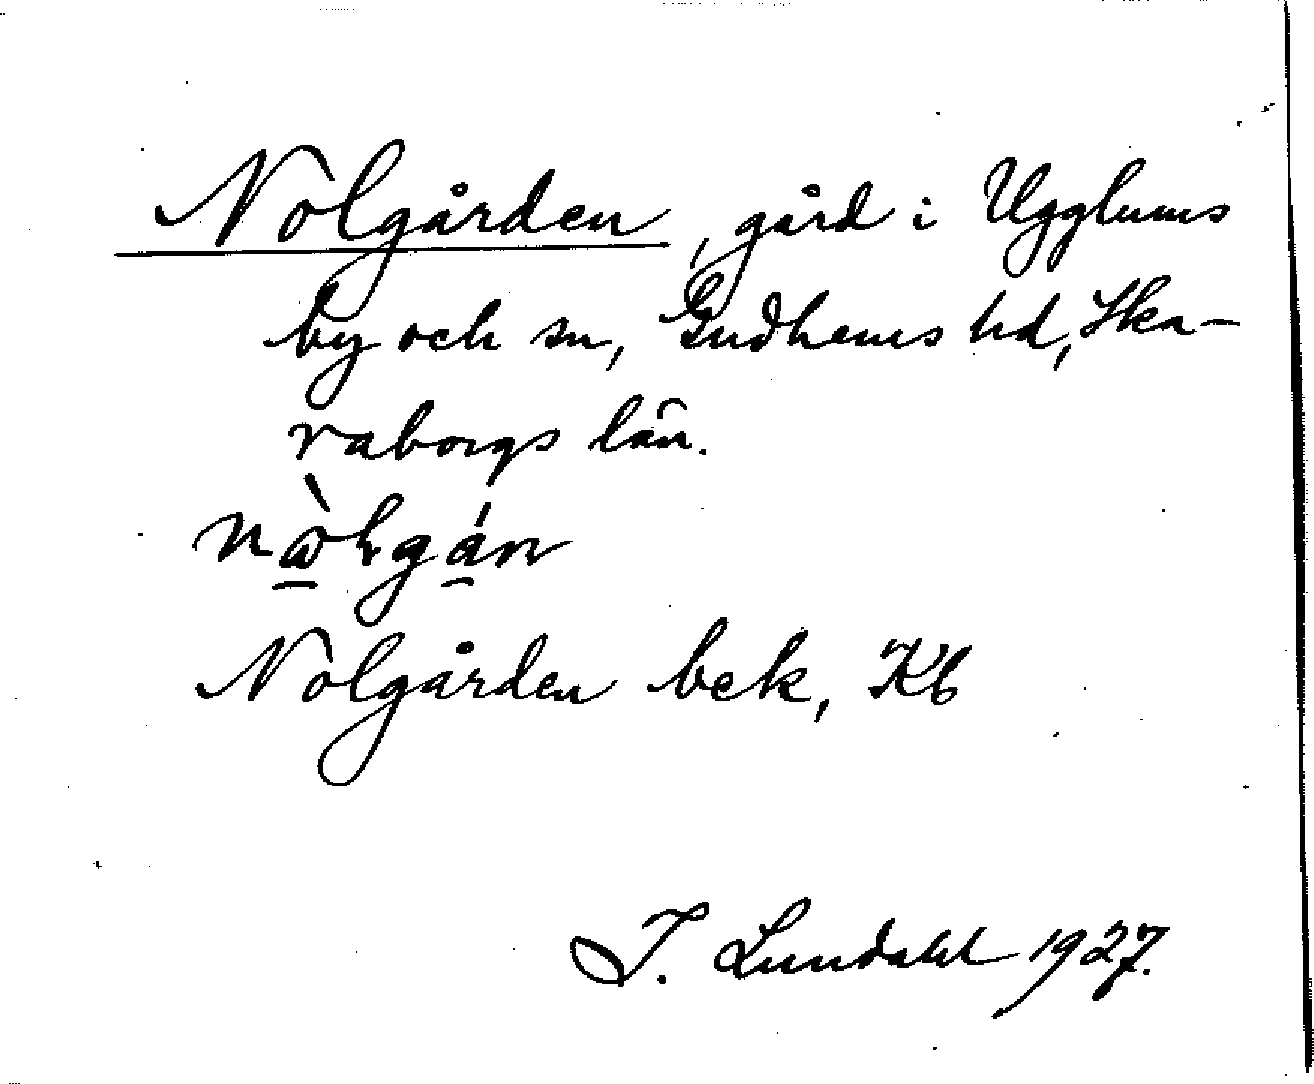 Nolgården, gård i Ugglums
by och sn, Gudhems hd, Ska-
raborgs län.
Nolgården bek, Kb
I. Lundahl 1927.